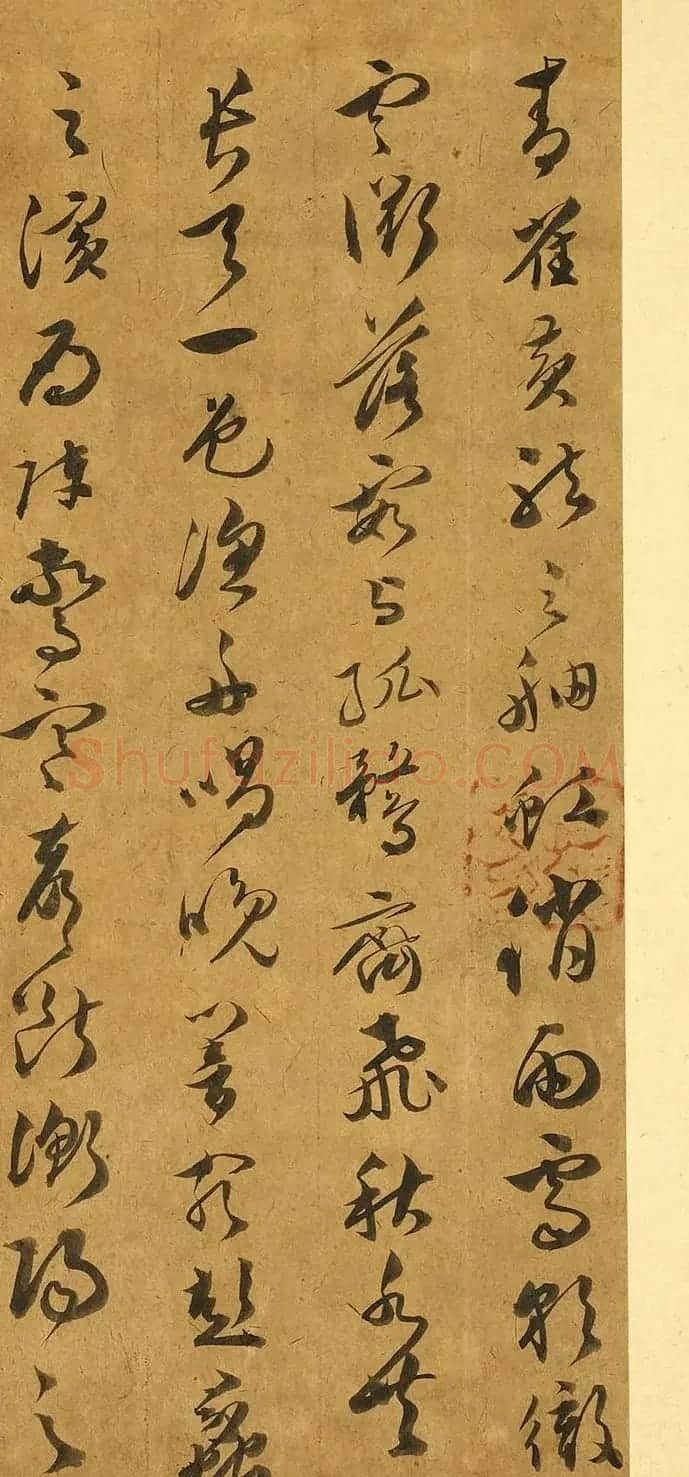 青雀黄龍之舳虹銷雨霽彩徹
雲衢落霞与孤鶩齊飛秋水共
長天一色漁舟唱晚響窮彭蠡
之濱鴈陣驚寒聲斷衡陽之
Shufaziliao.COM